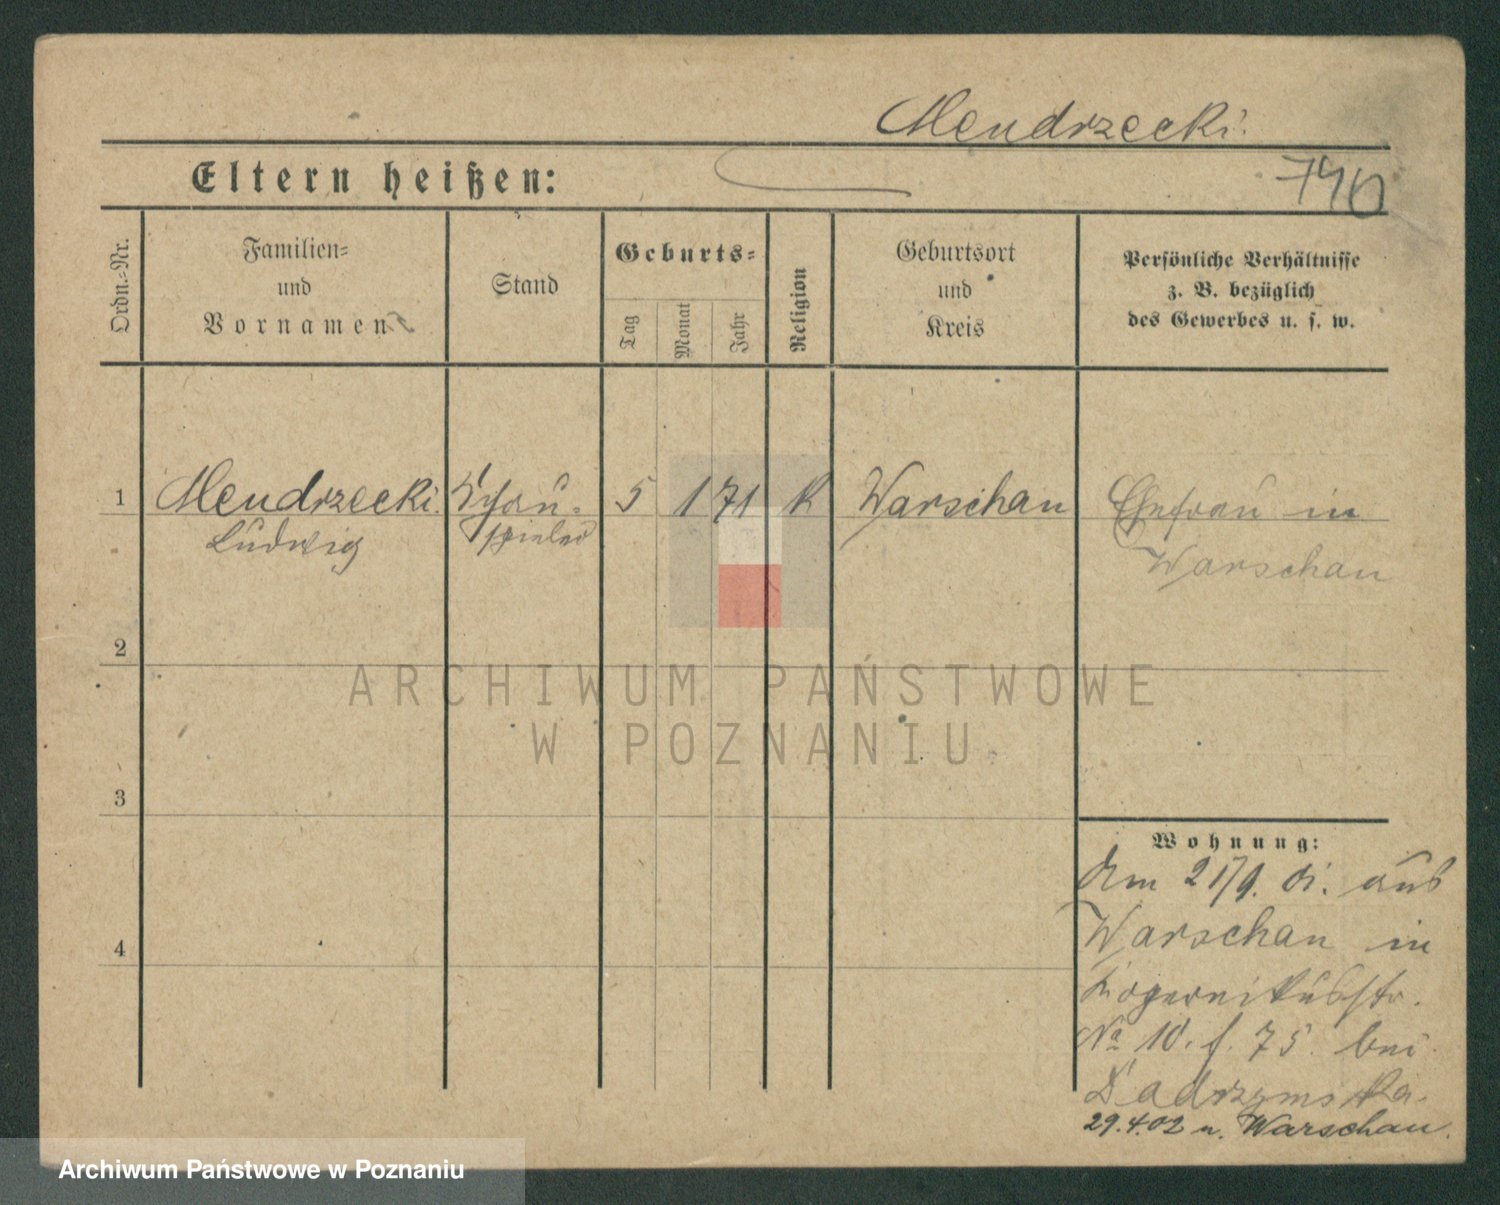 Mendrzecki.
Eltern heißen:
740
Ordn.-Nr.
Familien-
und
Vornamen
Stand
Geburts-
Tag
Monat
Jahr
Religion
Geburtsort
und
Kreis
Persönliche Verhältnisse
z. B. bezüglich
des Gewerbes u. s. w.
1
Mendrzecki.
Ludwig
Schau-
spieler
5
1
71
K
Warschau
Ehefrau in
Warschau
2
ARCHIWUM PAŃSTWOWE
W POZNANIU
3
Wohnung:
Am 21/9. 01. aus
Warschau in
Kopernikusstr.
No 10. f. 75. bei
29.4.02 n. Warschau.
4
Archiwum Państwowe w Poznaniu